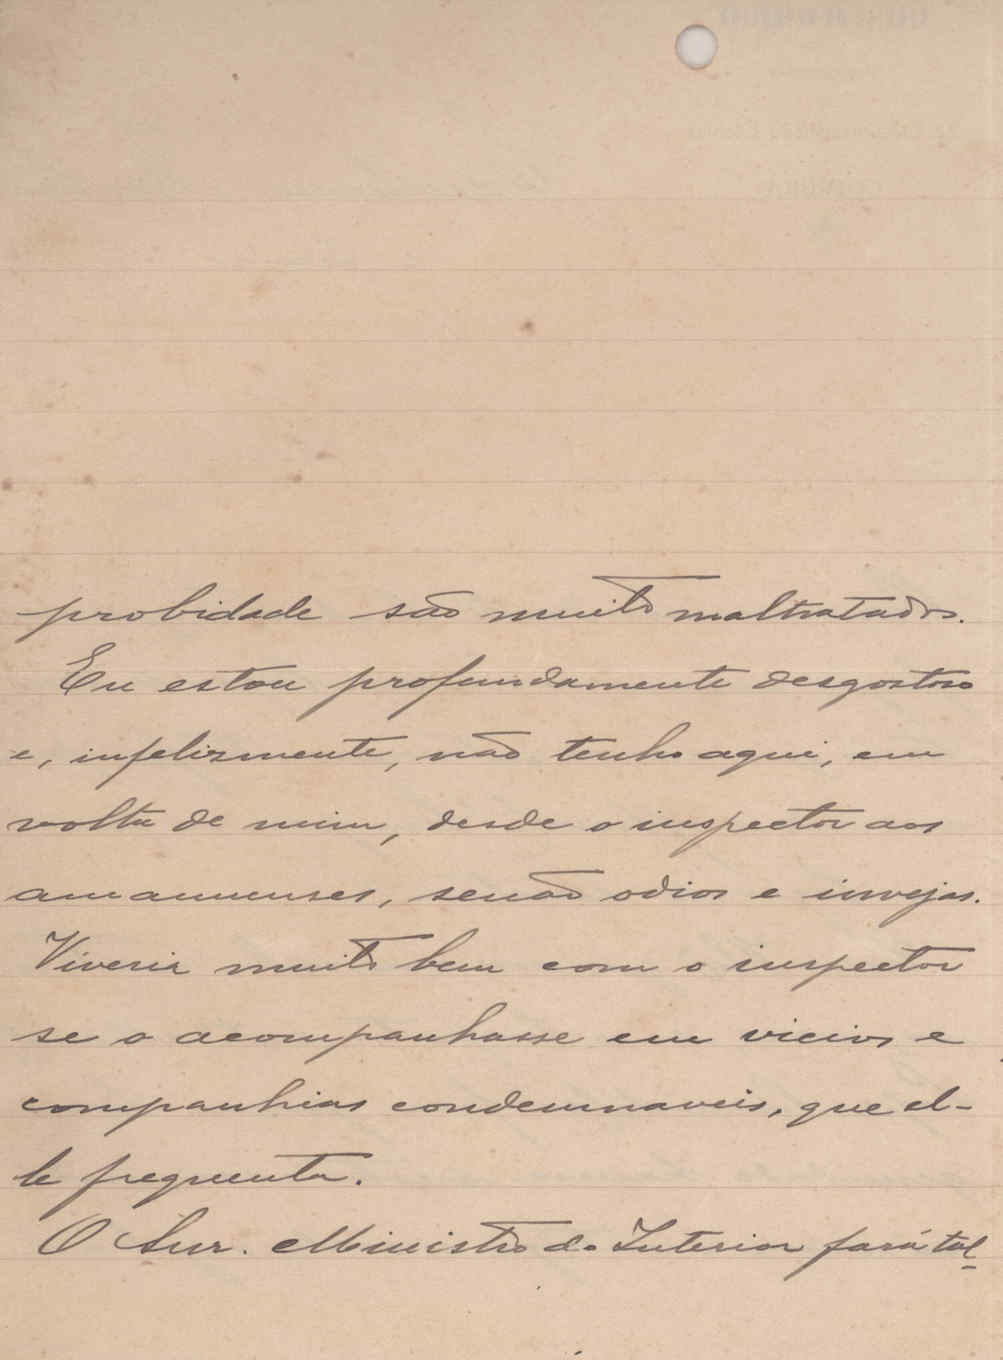 probidade são muito maltratados.
Eu estou profundamente desgostoso
e, infelizmente, não tenho aqui, em
volta de mim, desde o inspector aos
amanuenses, senão odios e invejas.
Viveria muito bem com o inspector
se o acompanhasse em vicios e
companhias condemnaveis, que el-
le frequenta.
O Snr. Ministro do Interior fará tal-